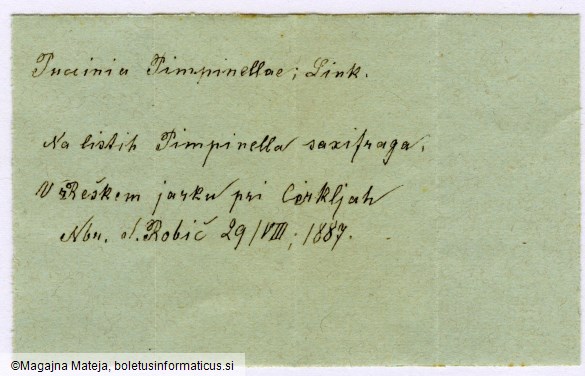 Puccinia Pimpinellae; Link.
Na listih Pimpinella saxifraga.
V Reškem jarku pri Cerkljah
Nbr. S. Robič 29/VIII; 1887.
©Magajna Mateja, boletusinformaticus.si